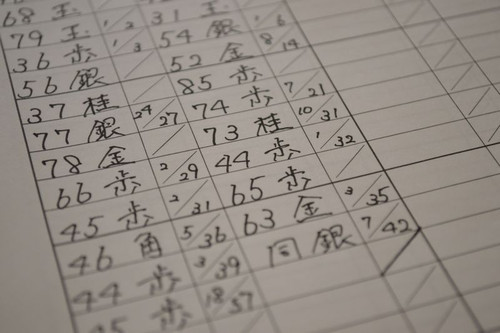 68 玉 31 玉
79 玉 1/2 54 銀 1/6
36 歩 1/3 52 金 8/14
56 銀 85 歩
37 桂 24/27 74 歩 7/21
77 銀 73 桂 10/31
78 金 2/29 44 歩 1/32
66 歩 2/31 65 歩
45 歩 5/36 63 金 3/35
46 角 3/39 同 銀 7/42
44 歩 18/57
歩